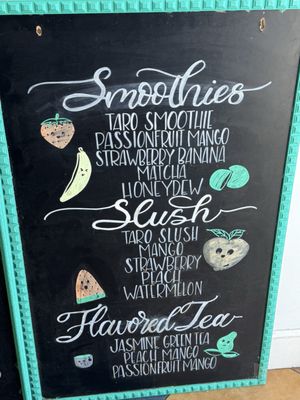 Smoothies
TARO SMOOTHIE
PASSIONFRUIT MANGO
STRAWBERRY BANANA
MATCHA
HONEYDEW
Slush
TARO SLUSH
MANGO
STRAWBERRY
PEACH
WATERMELON
Flavored Tea
JASMINE GREEN TEA
PEACH MANGO
PASSIONFRUIT MANGO